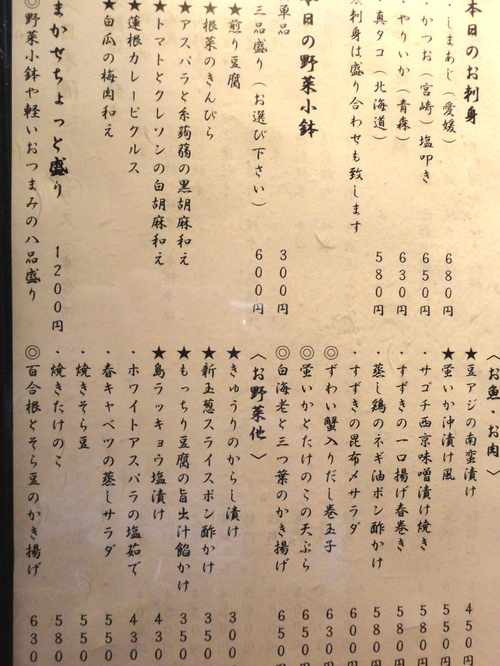 本日のお刺身
・しまあじ（愛媛） 680円
・かつお（宮崎）塩叩き 650円
・やりいか（青森） 630円
・真タコ（北海道） 580円
刺身は盛り合わせも致します
本日の野菜小鉢
単品 300円
三品盛り（お選び下さい） 600円
★煎り豆腐
★根菜のきんぴら
★アスパラと糸蒟蒻の黒胡麻和え
★トマトとクレソンの白胡麻和え
★蓮根カレーピクルス
★白瓜の梅肉和え
まかせちょっと盛り 1200円
◎野菜小鉢や軽いおつまみの八品盛り
〈お魚・お肉〉
★豆アジの南蛮漬け 450
★蛍いか沖漬け風 550
・サゴチ西京味噌漬け焼き 580
・すずきの一口揚げ春巻き 580円
・蒸し鶏のネギ油ポン酢かけ 580円
・すずきの昆布〆サラダ 600円
◎ずわい蟹入りだし巻玉子 630円
◎蛍いかとたけのこの天ぷら 650円
◎白海老と三つ葉のかき揚げ 650円
〈お野菜他〉
★きゅうりのからし漬け 300
★新玉葱スライスポン酢かけ 350
★もっちり豆腐の旨出汁餡かけ 350
★島ラッキョウ塩漬け 430
・ホワイトアスパラの塩茹で 430
・春キャベツの蒸しサラダ 550
・焼きそら豆 550
・焼きたけのこ 580
◎百合根とそら豆のかき揚げ 630